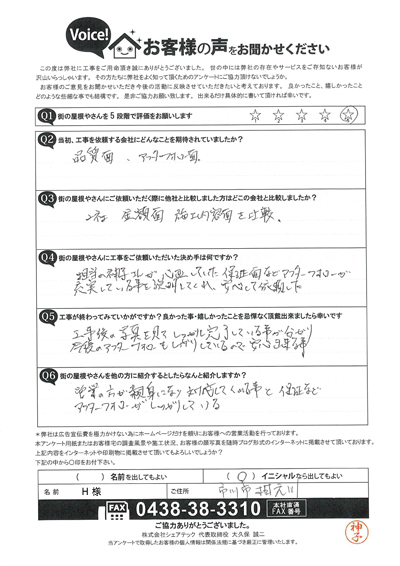 Voice!
お客様の声をお聞かせください
この度は弊社に工事をご用命頂き誠にありがとうございました。世の中には弊社の存在やサービスをご存知ないお客様が
沢山いらっしゃいます。その方たちに弊社をよく知って頂くためのアンケートにご協力頂けないでしょうか。
お客様のご意見をお聞かせいただき今後の活動に反映させていただきたいと考えております。良かったこと、嬉しかったこと
どのような些細な事でも結構です。是非ご協力お願い致します。出来るだけ具体的に書いて頂ければ幸いです。
Q1 街の屋根やさんを5段階で評価をお願いします ☆ ☆ ☆ ☆ ☆
Q2 当初、工事を依頼する会社にどんなことを期待されていましたか?
品質面、アフターフォロー面
Q3 街の屋根やさんにご依頼いただく際に他社と比較しました方はどこの会社と比較しましたか?
2社 金額面 施工内容面を比較。
Q4 街の屋根やさんに工事をご依頼いただいた決め手は何ですか?
保証面などアフターフォローが
充実している事を説明してくれ、安心して依頼した
Q5 工事が終わってみていかがですか?良かった事・嬉しかったことを忌憚なく頂戴出来ましたら幸いです
工事後の写真を見てしっかり完了している事が分かり
今後のアフターフォローもしっかりしているので安心出来る事
Q6 街の屋根やさんを他の方に紹介するとしたらなんと紹介しますか?
営業の方が親身になり対応してくれる事と保証など
アフターフォローがしっかりしている
*弊社は広告宣伝費を極力かけない為にホームページだけを頼りにお客様への営業活動を行っております。
本アンケート用紙またはお客様宅の調査風景や施工状況、お客様の顔写真を随時ブログ形式のインターネットに掲載させて頂いております。
上記内容をインターネットや印刷物に掲載させて頂いてもよろしいでしょうか?
下記の中から○印をお付下さい。
( ) 名前を出してもよい (○) イニシャルなら出してもよい
名前 H様 ご住所 市川市
FAX 0438-38-3310 本社直通 FAX番号
ご協力ありがとうございました。
株式会社シェアテック 代表取締役 大久保 誠二
当アンケートで取得したお客様の個人情報は関係法規に基づき厳正に管理いたします。
神子